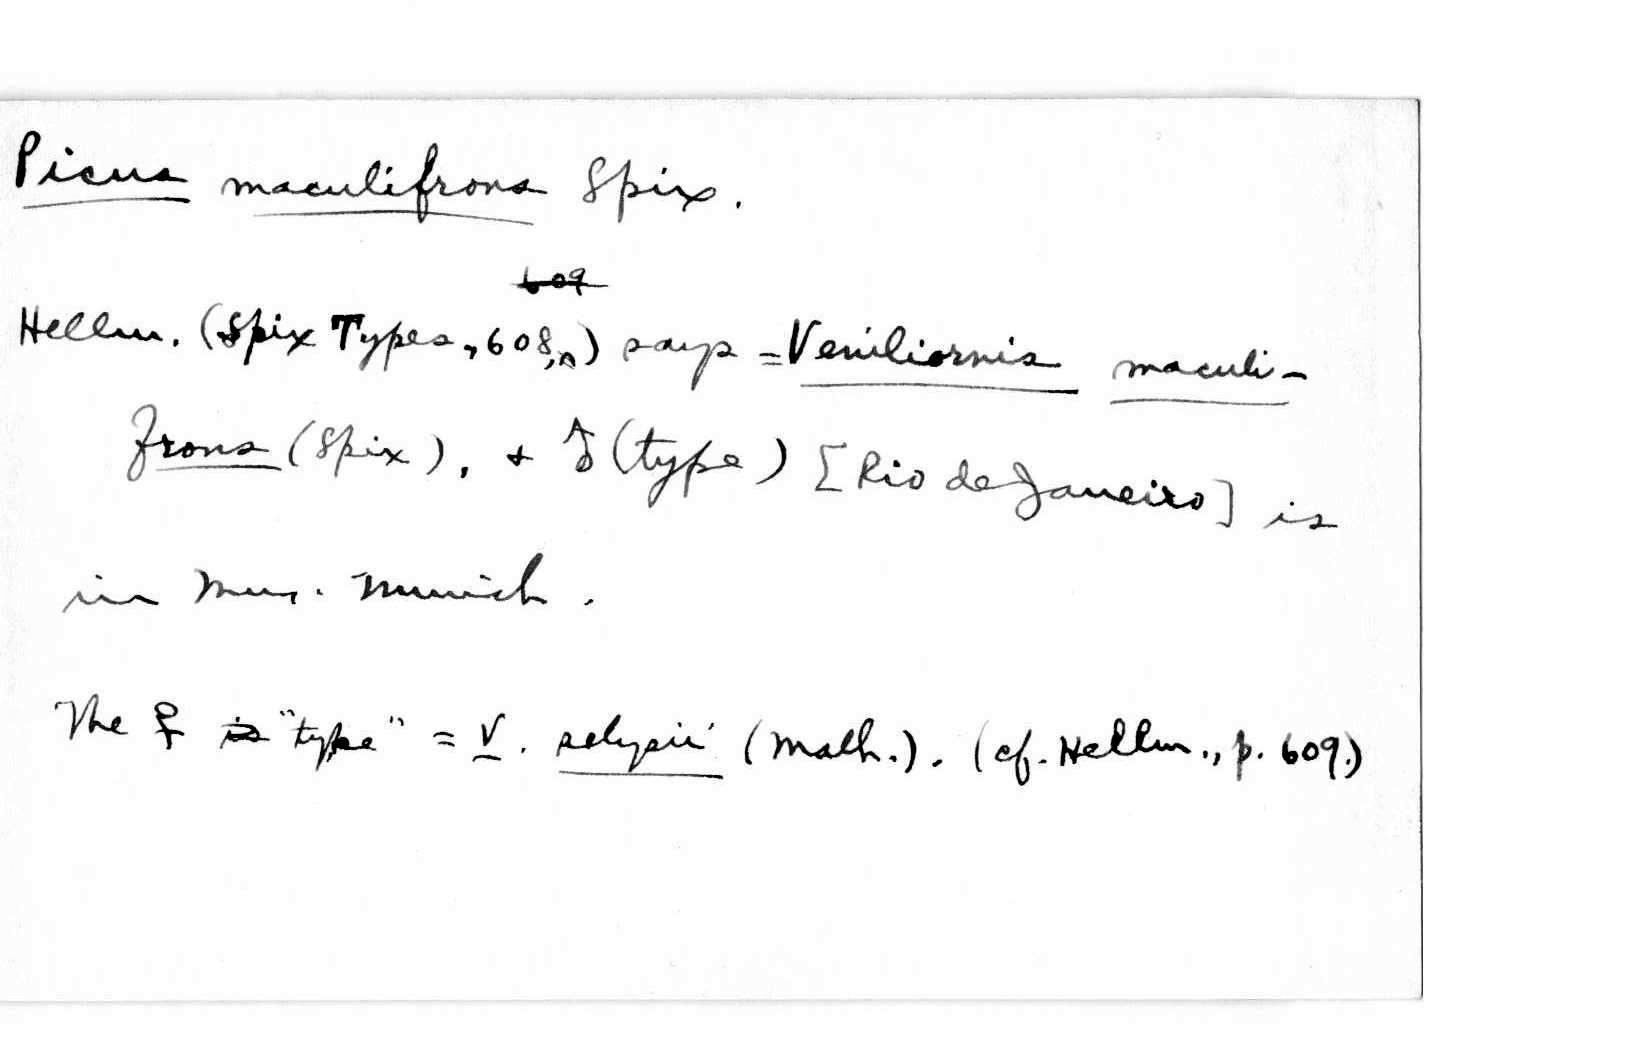 Picus maculifrons Spix.
609
Hellm. (Spix Types, 608,) says = Veniliornis maculi-
frons (Spix), + ♂ (type) [Rio de Janeiro] is
in Mus. Munich.
The ♀ is "type" = V. selysii (Malh.). (cf. Hellm., p. 609.)